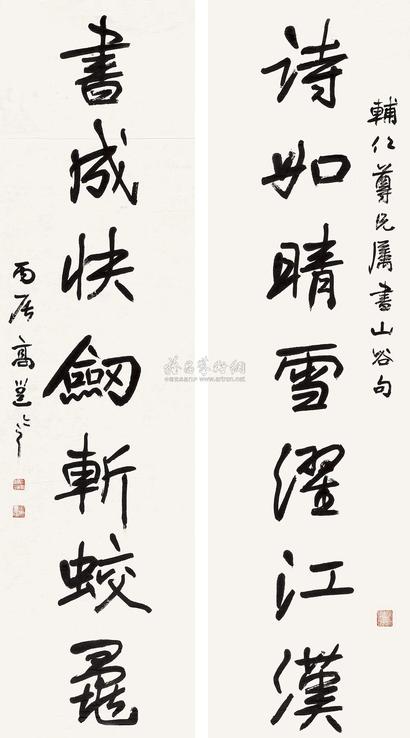 輔仁尊兄屬書山谷句
詩如晴雪濯江漢
書成快劍斬蛟鼉
丙辰高邕
雅昌藝術網
www.artron.net